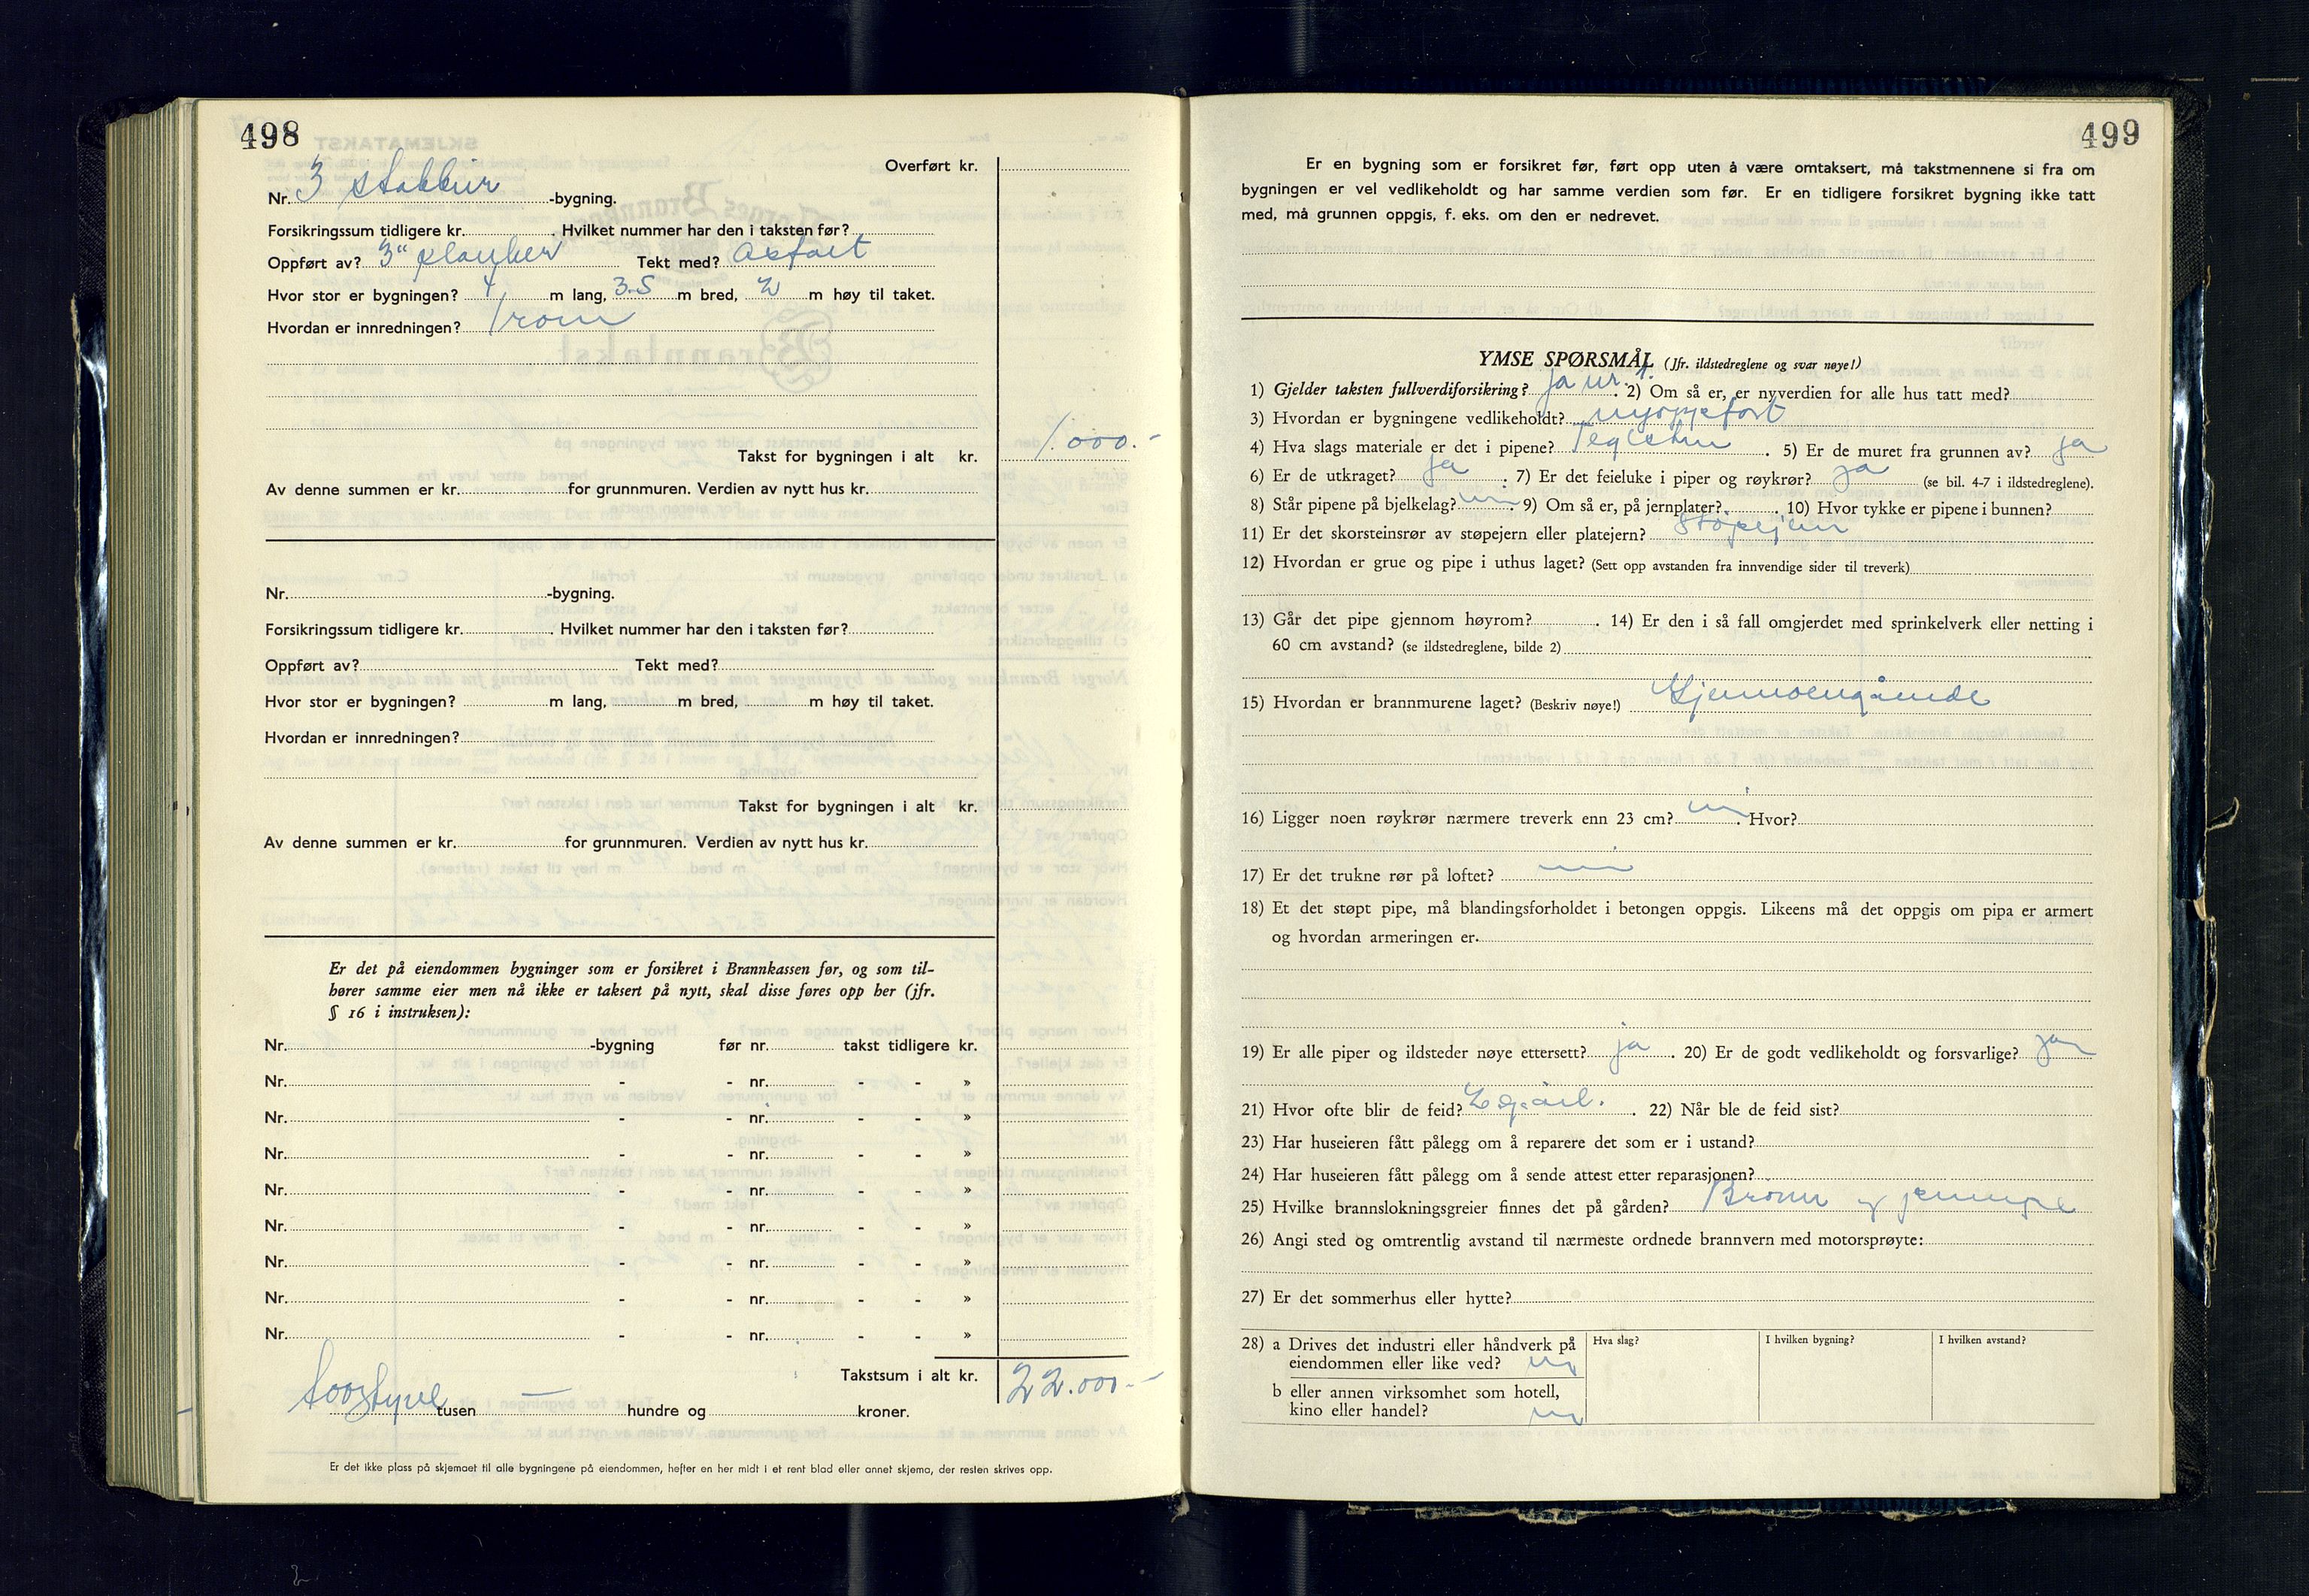 498
Overført kr.
Nr. 3 stabbur -bygning.
Forsikringssum tidligere kr. Hvilket nummer har den i taksten før?
Oppført av? 3" planker Tekt med? Asfalt
Hvor stor er bygningen? 4 m lang, 3.5 m bred, 2 m høy til taket.
Hvordan er innredningen? 1 rom
1.000.-
Takst for bygningen i alt kr.
Av denne summen er kr. for grunnmuren. Verdien av nytt hus kr.
Nr. -bygning.
Forsikringssum tidligere kr. Hvilket nummer har den i taksten før?
Oppført av? Tekt med?
Hvor stor er bygningen? m lang, m bred, m høy til taket.
Hvordan er innredningen?
Takst for bygningen i alt kr.
Av denne summen er kr. for grunnmuren. Verdien av nytt hus kr.
Er det på eiendommen bygninger som er forsikret i Brannkassen før, og som til-
hører samme eier men nå ikke er taksert på nytt, skal disse føres opp her (jfr.
§ 16 i instruksen):
Nr. -bygning før nr. takst tidligere kr.
Nr. - - nr. - - »
Nr. - - nr. - - »
Nr. - - nr. - - »
Nr. - - nr. - - »
Nr. - - nr. - - »
Nr. - - nr. - - »
Nr. - - nr. - - »
Nr. - - nr. - - »
Takstsum i alt kr. 22.000.-
toogtyve tusen — hundre og kroner.
Er det ikke plass på skjemaet til alle bygningene på eiendommen, hefter en her midt i et rent blad eller annet skjema, der resten skrives opp.
499
Er en bygning som er forsikret før, ført opp uten å være omtaksert, må takstmennene si fra om
bygningen er vel vedlikeholdt og har samme verdien som før. Er en tidligere forsikret bygning ikke tatt
med, må grunnen oppgis, f. eks. om den er nedrevet.
YMSE SPØRSMÅL (Jfr. ildstedreglene og svar nøye!)
1) Gjelder taksten fullverdiforsikring? ja nr. 1. 2) Om så er, er nyverdien for alle hus tatt med?
3) Hvordan er bygningene vedlikeholdt? nyoppført
4) Hva slags materiale er det i pipene? Teglsten . 5) Er de muret fra grunnen av? ja
6) Er de utkraget? ja . 7) Er det feieluke i piper og røykrør? ja (se bil. 4-7 i ildstedreglene).
8) Står pipene på bjelkelag? nei . 9) Om så er, på jernplater? . 10) Hvor tykke er pipene i bunnen?
11) Er det skorsteinsrør av støpejern eller platejern? støpejern
12) Hvordan er grue og pipe i uthus laget? (Sett opp avstanden fra innvendige sider til treverk)
13) Går det pipe gjennom høyrom? . 14) Er den i så fall omgjerdet med sprinkelverk eller netting i
60 cm avstand? (se ildstedreglene, bilde 2)
15) Hvordan er brannmurene laget? (Beskriv nøye!) Gjennomgående
16) Ligger noen røykrør nærmere treverk enn 23 cm? nei . Hvor?
17) Er det trukne rør på loftet? nei
18) Et det støpt pipe, må blandingsforholdet i betongen oppgis. Likeens må det oppgis om pipa er armert
og hvordan armeringen er.
19) Er alle piper og ildsteder nøye ettersett? ja . 20) Er de godt vedlikeholdt og forsvarlige? ja
21) Hvor ofte blir de feid? 2 g. årl. . 22) Når ble de feid sist?
23) Har huseieren fått pålegg om å reparere det som er i ustand?
24) Har huseieren fått pålegg om å sende attest etter reparasjonen?
25) Hvilke brannslokningsgreier finnes det på gården? Brønn og pumpe
26) Angi sted og omtrentlig avstand til nærmeste ordnede brannvern med motorsprøyte:
27) Er det sommerhus eller hytte?
28) a Drives det industri eller håndverk på Hva slag? I hvilken bygning? I hvilken avstand?
eiendommen eller like ved? nei
b eller annen virksomhet som hotell,
kino eller handel? nei